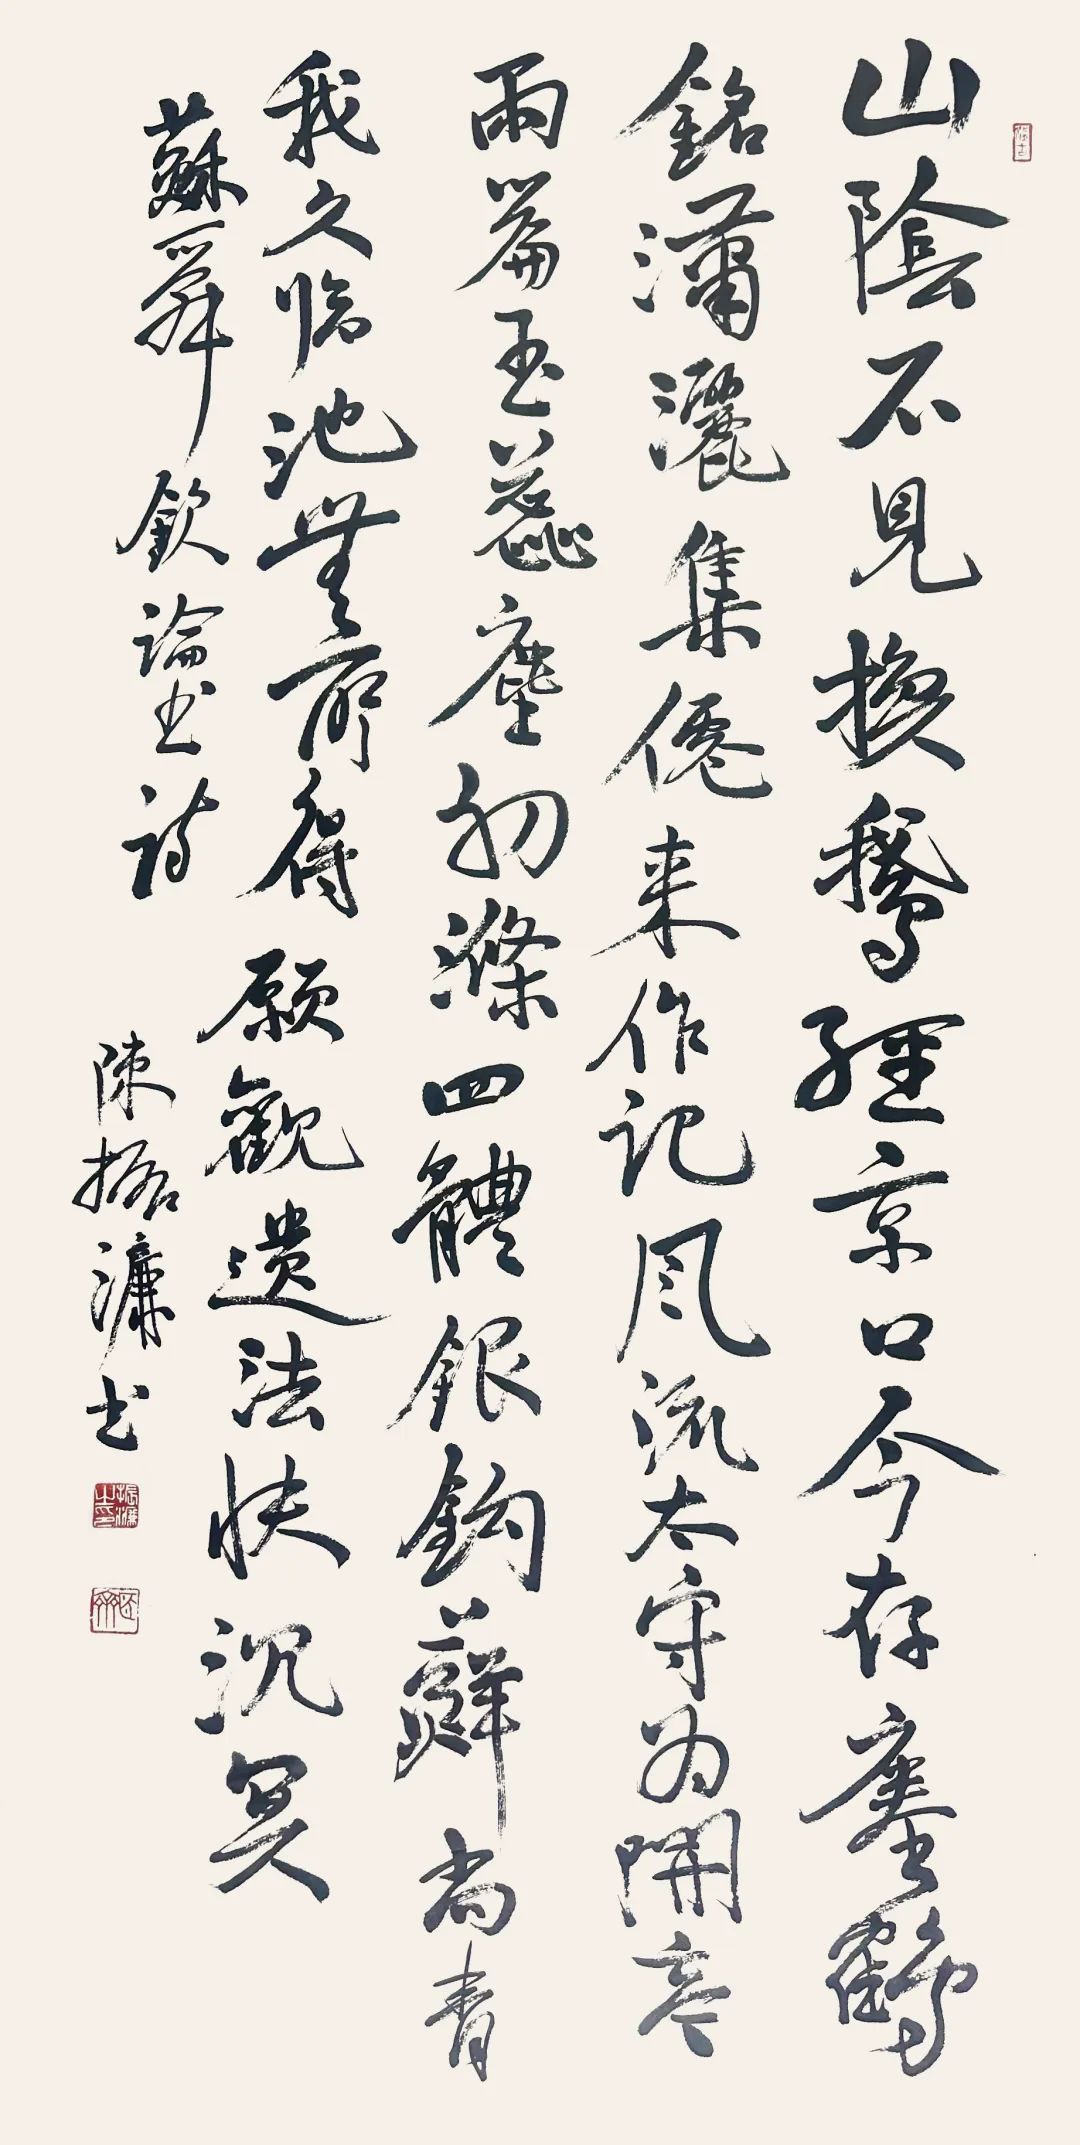 山陰不見換鵝經京口今存瘞鶴
銘瀟灑集僊来作記风流太守为開亭
兩篇玉蕊塵初滌四體銀鈎蘚尚青
我久临池無所得願觀遗法快沉冥
蘇舜欽論书诗 陳振濂书
振濂之印